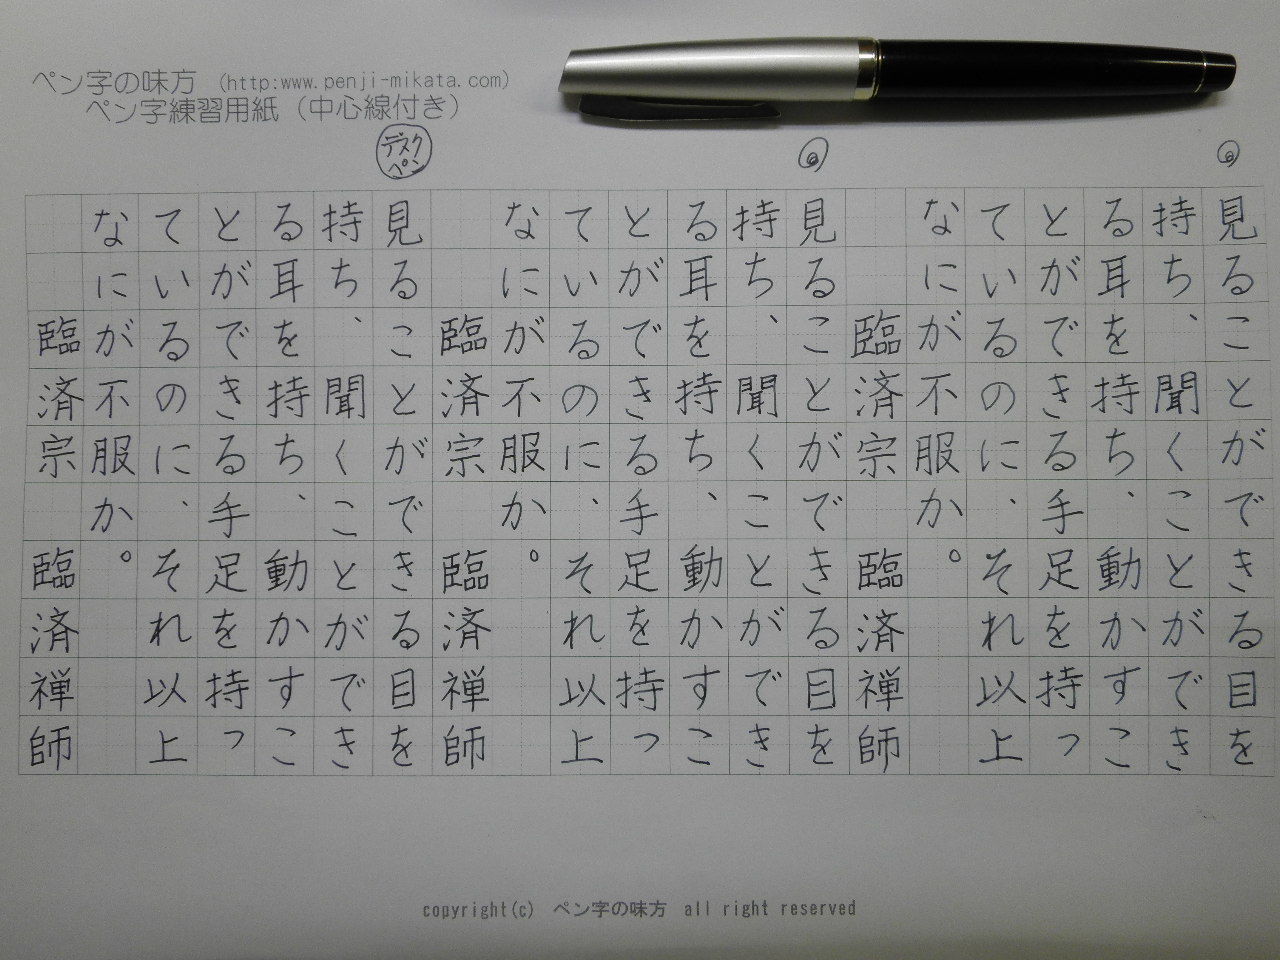 ペン字の味方 (http:www.penji-mikata.com)
ペン字練習用紙(中心線付き)
見ることができる目を
持ち、聞くことができ
る耳を持ち、動かすこ
とができる手足を持っ
ているのに、それ以上
なにが不服か。
臨済宗 臨済禅師
見ることができる目を
持ち、聞くことができ
る耳を持ち、動かすこ
とができる手足を持っ
ているのに、それ以上
なにが不服か。
臨済宗 臨済禅師
デスク
ペン
見ることができる目を
持ち、聞くことができ
る耳を持ち、動かすこ
とができる手足を持っ
ているのに、それ以上
なにが不服か。
臨済宗 臨済禅師
copyright(c) ペン字の味方 all right reserved